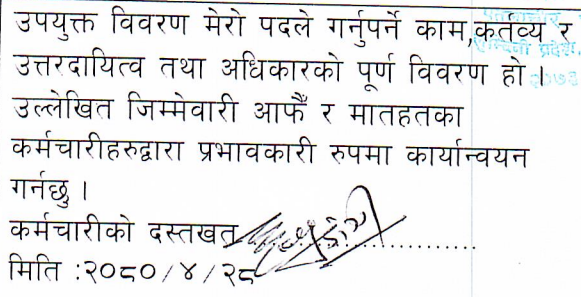 उपयुक्त विवरण मेरो पदले गर्नुपर्ने काम,कर्तव्य र
उत्तरदायित्व तथा अधिकारको पूर्ण विवरण हो ।
उल्लेखित जिम्मेवारी आफैँ र मातहतका
कर्मचारीहरुद्वारा प्रभावकारी रुपमा कार्यान्वयन
गर्नछु ।
कर्मचारीको दस्तखत
मिति :२०८०/४/२८